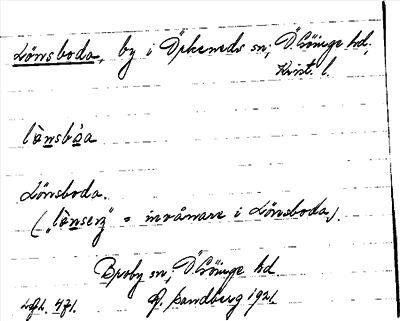 Lönsboda, by i Örkeneds sn, Ö Göinge hd,
Krist. l.
lònsbòa
Lönsboda.
(„lònsery" = invånare i Lönsboda).
Broby sn, Ö Göinge hd
Sandberg 1921.
471.